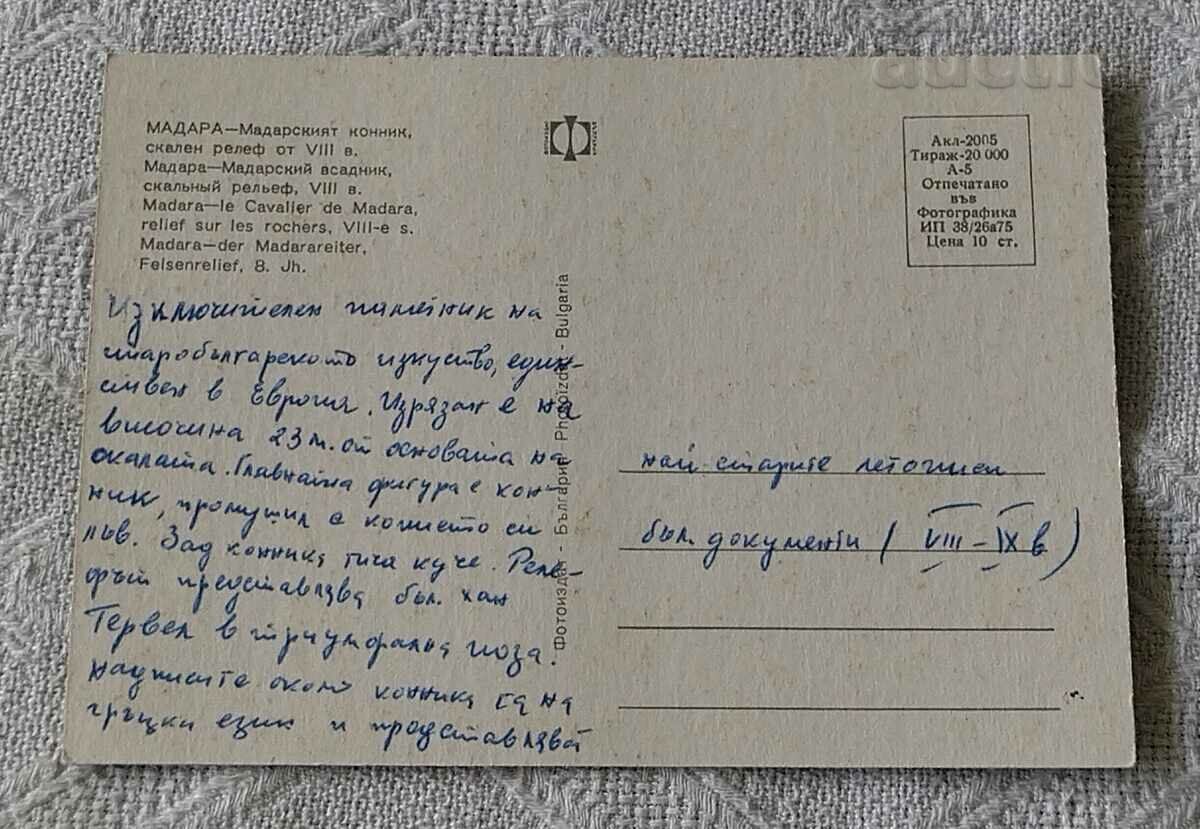 МАДАРА—Мадарският конник,
скален релеф от VIII в.
Мадара—Мадарский всадник,
скальный рельеф, VIII в.
Madara—le Cavalier de Madara,
relief sur les rochers, VIII-e s.
Madara—der Madarareiter,
Felsenrelief, 8. Jh.
Изключителен паметник на
старобългарското изкуство, един-
ствен в Европа. Изрязан е на
височина 23 м. от основата на
скалата. Главната фигура е кон-
ник, промушил с копието си
лъв. Зад конника тича куче. Реле-
фът представлява бъл. хан
Тервел в триумфална поза.
Надписите около конника са на
гръцки език и представляват
Фотоиздат - България - Photoizdat - Bulgaria
Акл-2005
Тираж-20 000
А-5
Отпечатано
във
Фотографика
ИП 38/26а75
Цена 10 ст.
най старите летописни
бъл. документи (VIII-IX в)
auction